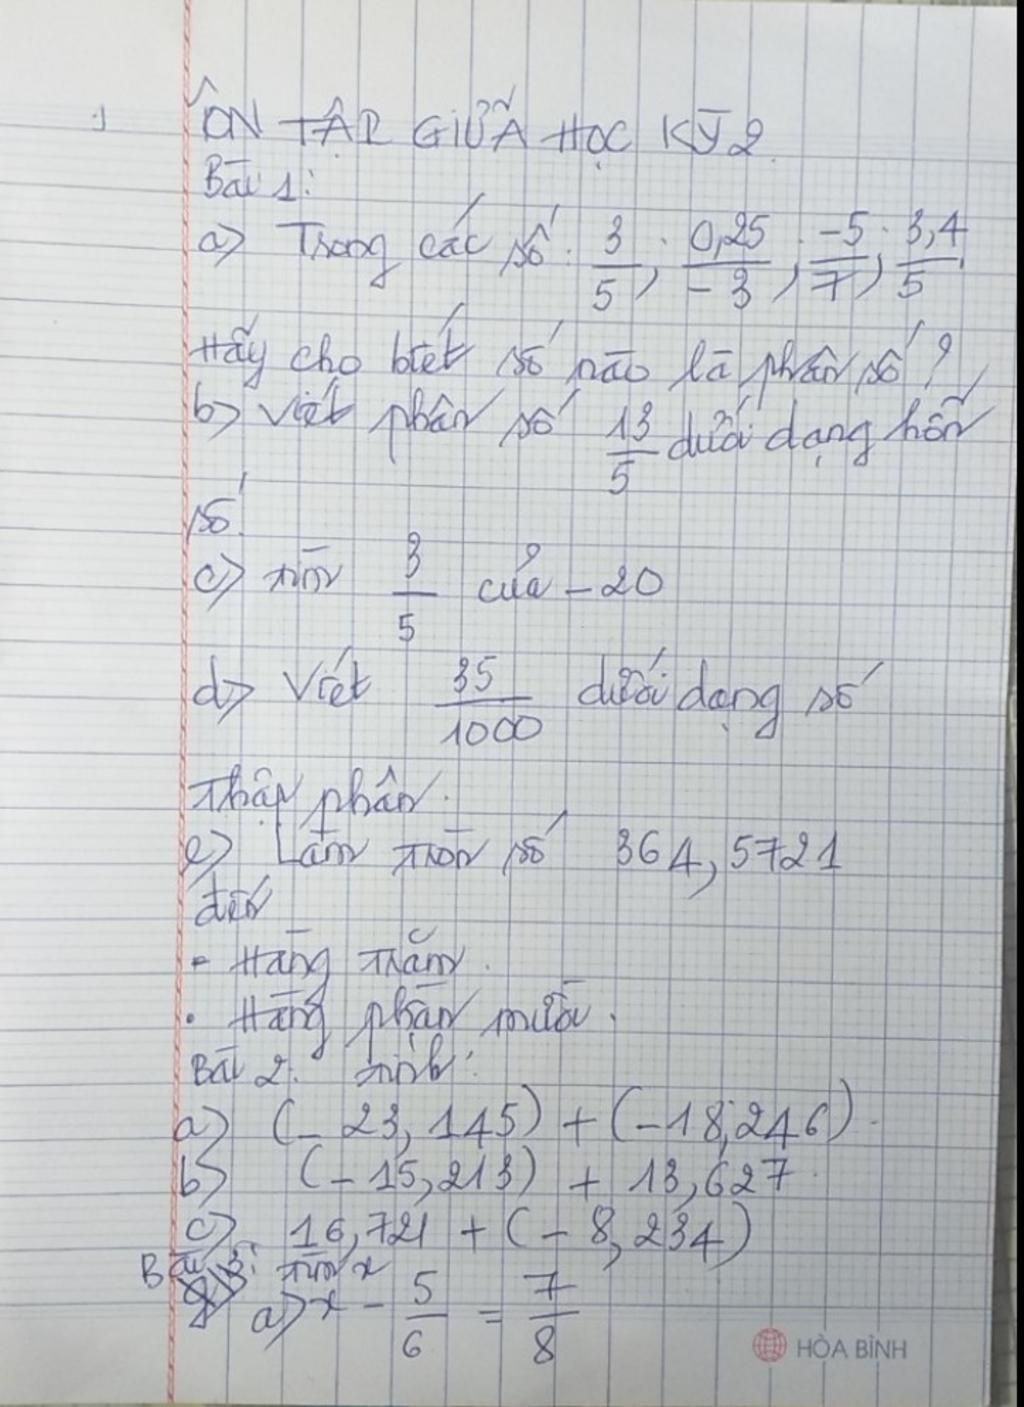 1
ÔN TẬP GIỮA HỌC KỲ 2
Bài 1:
a) Trong các số: 3/5; 0,25/-3; -5/7; 3,4/5.
Hãy cho biết số nào là phân số?
b) Viết phân số 13/5 dưới dạng hỗn
số.
c) Tìm 3/5 của -20
d) Viết 35/1000 dưới dạng số
Thập phân.
e) Làm tròn số 364,5721
đến
- Hàng trăm.
. Hàng phần mười.
Bài 2: Tính:
a) (-23,145) + (-18,246).
b) (-15,213) + 13,627.
c) 16,721 + (-8,234)
Bài 3: Tìm x
a) x - 5/6 = 7/8
HÒA BÌNH